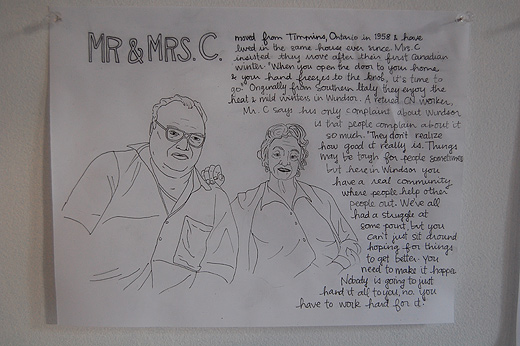 MR & MRS. C.
moved from Timmins, Ontario in 1958 & have
lived in the same house ever since. Mrs. C
insisted they move after their first Canadian
winter. "When you open the door to your home,
& your hand freezes to the knob, it's time to
go." Originally from Southern Italy they enjoy the
heat & mild winters in Windsor. A retired CN worker,
Mr. C says his only complaint about Windsor
is that people complain about it
so much. "They don't realize
how good it really is. Things
may be tough for people sometimes
but here in Windsor you
have a real community,
where people help other
people out. We've all
had a struggle at
some point, but you
can't just sit around
hoping for things
to get better. You
need to make it happen.
Nobody is going to just
hand it all to you, no. You
have to work hard for it."